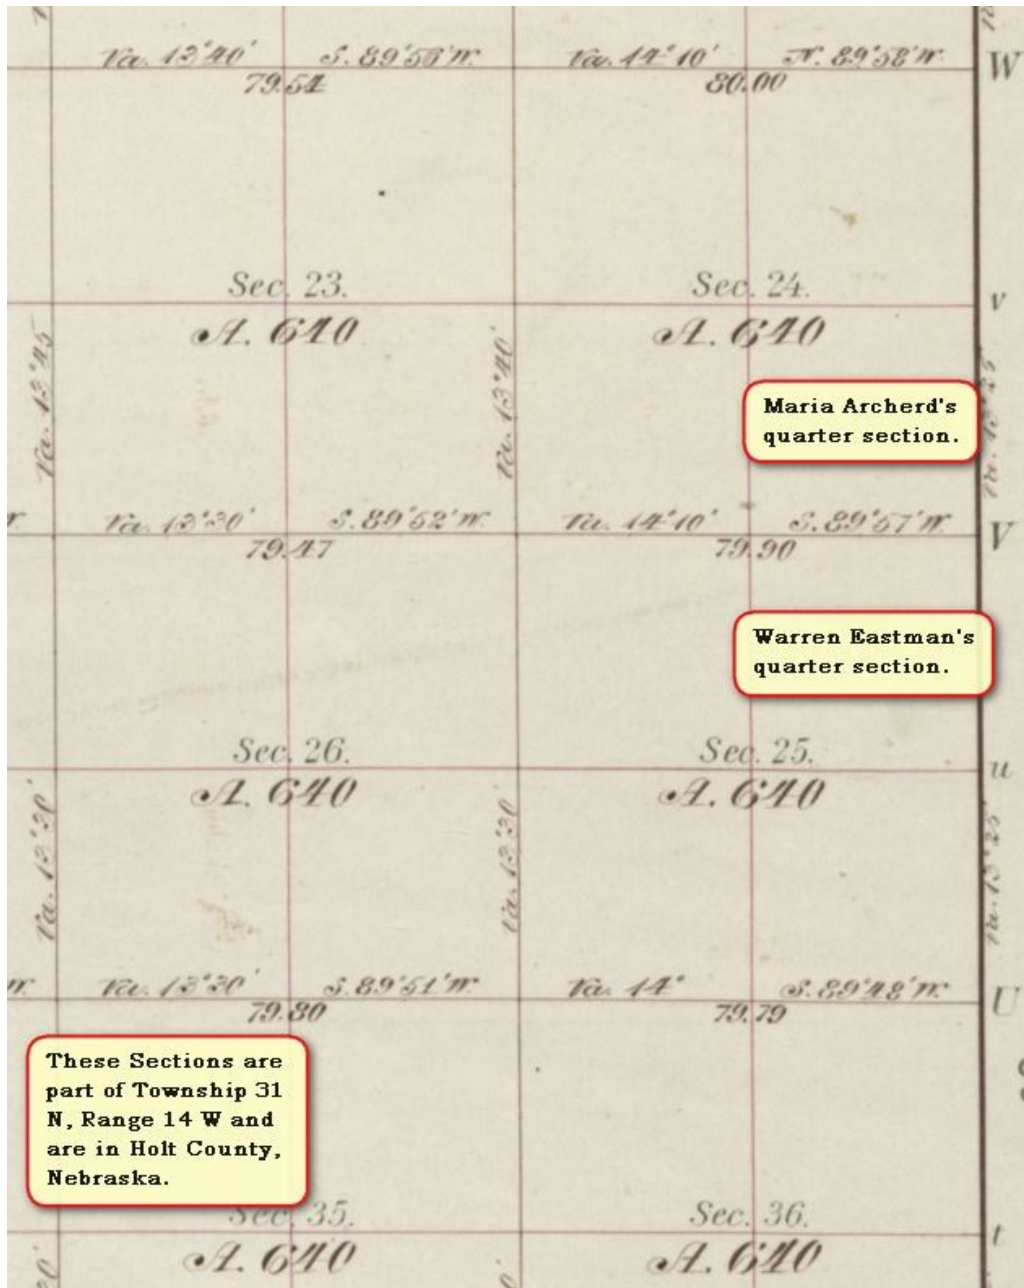 Va. 13°40' S. 89°56'W. Va. 14°10' N. 89°58'W. W
79.54 80.00
Sec. 23. Sec. 24. v
A. 640 A. 640
Va. 13°45'
Va. 13°40'
Va. 13°25'
Maria Archerd's
quarter section.
Va. 13°30' S. 89°52'W. Va. 14°10' S. 89°57'W. V
79.47 79.90
Warren Eastman's
quarter section.
Sec. 26. Sec. 25. u
A. 640 A. 640
Va. 13°30'
Va. 13°25'
W. Va. 13°30' S. 89°51'W. Va. 14° S. 89°48'W. U
79.80 79.79
These Sections are
part of Township 31
N, Range 14 W and
are in Holt County,
Nebraska.
Sec. 35. Sec. 36. t
A. 640 A. 640